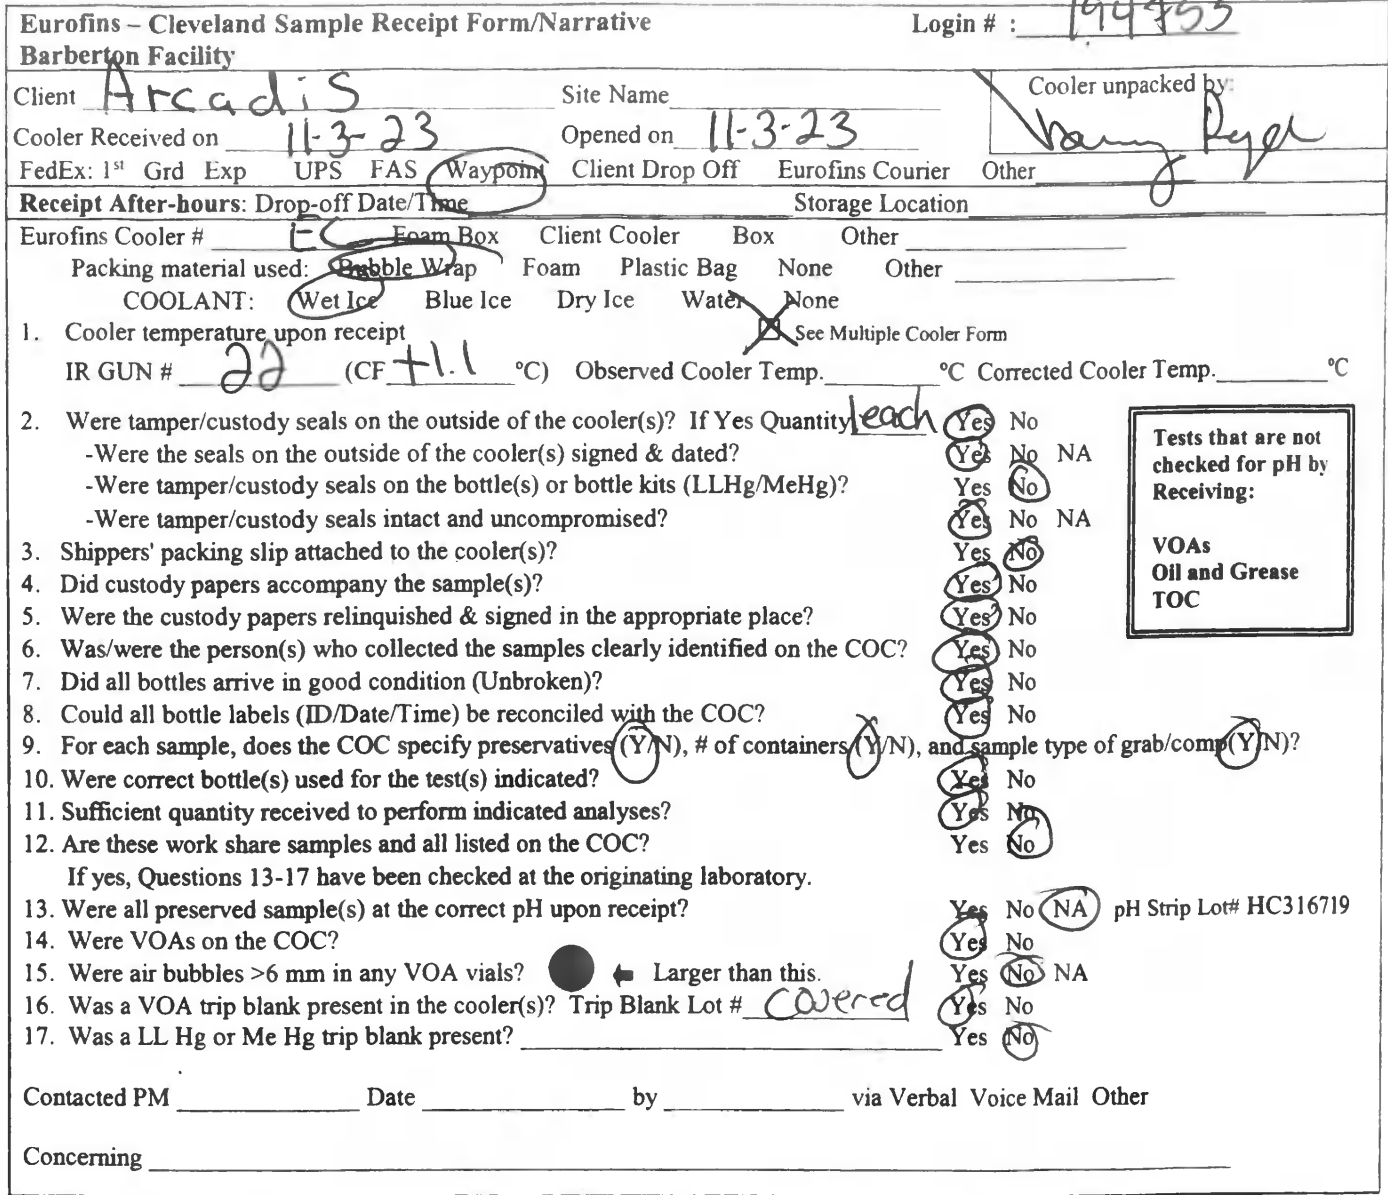 Eurofins – Cleveland Sample Receipt Form/Narrative Login # : 194755
Barberton Facility
Client Arcadis Site Name Cooler unpacked by:
Cooler Received on 11-3-23 Opened on 11-3-23
FedEx: 1st Grd Exp UPS FAS Waypoint Client Drop Off Eurofins Courier Other
Receipt After-hours: Drop-off Date/Time Storage Location
Eurofins Cooler # EC Foam Box Client Cooler Box Other
Packing material used: Bubble Wrap Foam Plastic Bag None Other
COOLANT: Wet Ice Blue Ice Dry Ice Water None
1. Cooler temperature upon receipt See Multiple Cooler Form
IR GUN # 22 (CF +1.1 °C) Observed Cooler Temp. °C Corrected Cooler Temp. °C
2. Were tamper/custody seals on the outside of the cooler(s)? If Yes Quantity 1 each Yes No
-Were the seals on the outside of the cooler(s) signed & dated? Yes No NA
-Were tamper/custody seals on the bottle(s) or bottle kits (LLHg/MeHg)? Yes No
-Were tamper/custody seals intact and uncompromised? Yes No NA
3. Shippers' packing slip attached to the cooler(s)? Yes No
4. Did custody papers accompany the sample(s)? Yes No
5. Were the custody papers relinquished & signed in the appropriate place? Yes No
6. Was/were the person(s) who collected the samples clearly identified on the COC? Yes No
7. Did all bottles arrive in good condition (Unbroken)? Yes No
8. Could all bottle labels (ID/Date/Time) be reconciled with the COC? Yes No
9. For each sample, does the COC specify preservatives (Y/N), # of containers (Y/N), and sample type of grab/comp(Y/N)?
10. Were correct bottle(s) used for the test(s) indicated? Yes No
11. Sufficient quantity received to perform indicated analyses? Yes No
12. Are these work share samples and all listed on the COC? Yes No
If yes, Questions 13-17 have been checked at the originating laboratory.
13. Were all preserved sample(s) at the correct pH upon receipt? Yes No NA pH Strip Lot# HC316719
14. Were VOAs on the COC? Yes No
15. Were air bubbles >6 mm in any VOA vials? Larger than this. Yes No NA
16. Was a VOA trip blank present in the cooler(s)? Trip Blank Lot # Covered Yes No
17. Was a LL Hg or Me Hg trip blank present? Yes No
Tests that are not
checked for pH by
Receiving:
VOAs
Oil and Grease
TOC
Contacted PM Date by via Verbal Voice Mail Other
Concerning